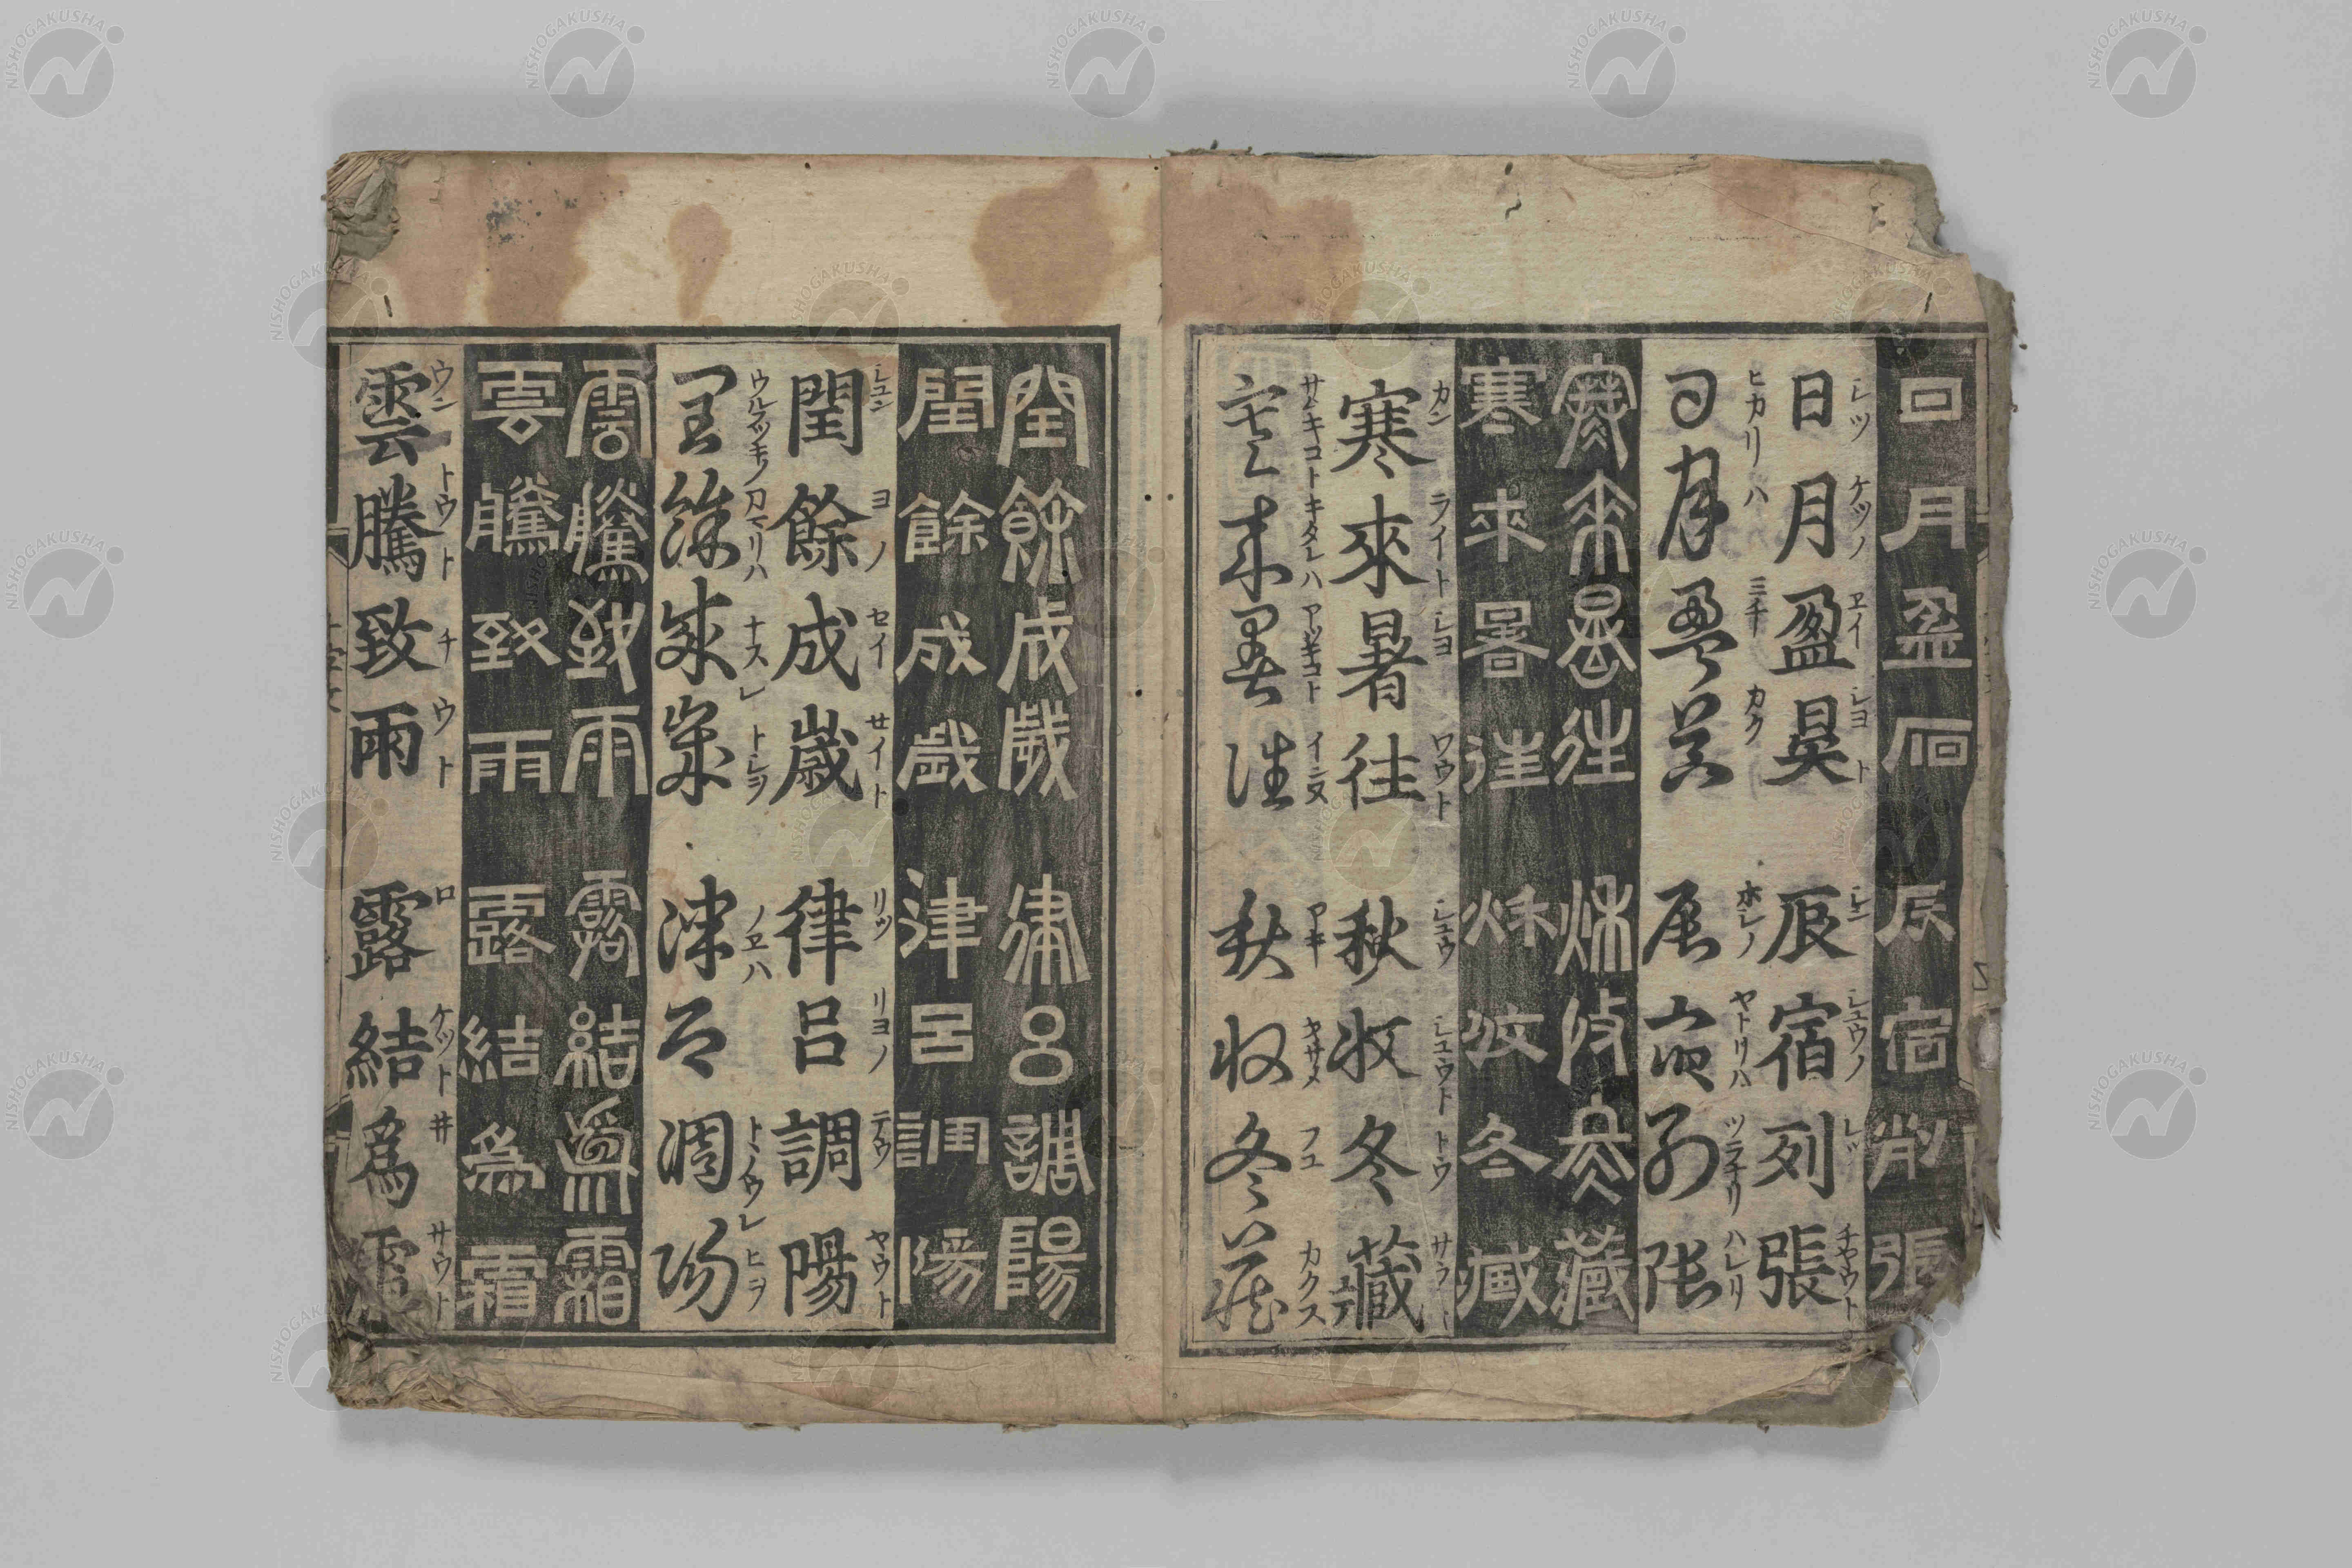 日月盈昃辰宿列張
日月盈昃辰宿列張
ジツ ゲツノ エイ シヨト シン シユウノ レツ チヤウト
日月盈昃辰宿列張
ヒカリハ ミチ カク ホシノ ヤトリハ ツラナリ ハレリ
寒來暑往秋收冬藏
寒來暑往秋收冬藏
寒來暑往秋收冬藏
カン ライト シヨ ワウト シユウ シユウト トウ サウ
寒來暑往秋收冬藏
サムキコトキタレハ アツキコト イヌ アキ ヲサメ フユ カクス
閏餘成歲律呂調陽
閏餘成歲律呂調陽
閏餘成歳律呂調陽
シユン ヨノ セイ サイト リツ リヨノ テウ ヤウト
閏餘成歳律呂調陽
ウルフツキノ アマリハ ナスレ トシヲ ノエハ トヽノウレ ヒヲ
雲騰致雨露結爲霜
雲騰致雨露結爲霜
雲騰致雨露結爲霜
ウン トウト チ ウト ロ ケツト 井 サウト